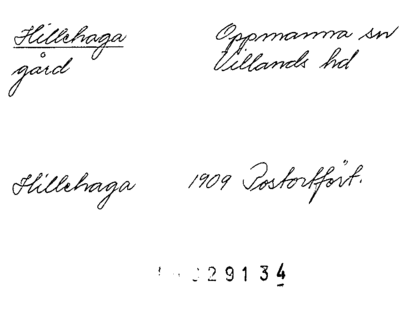 Hillehaga Oppmanna sn
gård Villands hd
Hillehaga 1909 Postortfört.
29134